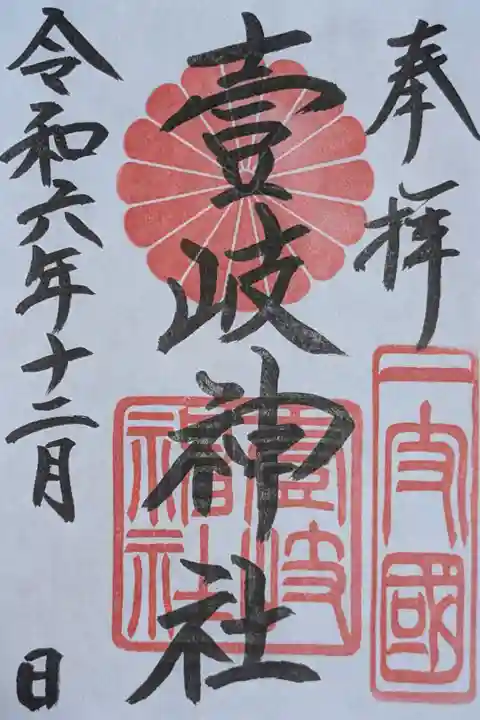 奉拝
一支國
壹岐神社
壹岐
神社
令和六年十二月 日